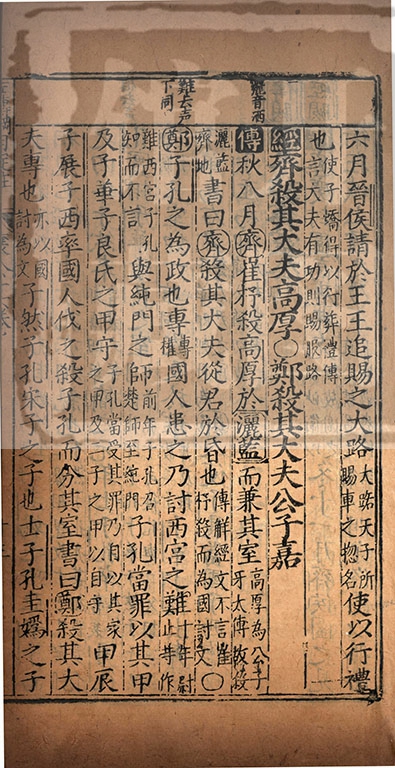 難去声
下同
六月晉侯請於王王追賜之大路大路天子所賜車之惣名使以行禮
也使子蟜得以行葬禮傳言大夫有功則賜服路
經齊殺其大夫高厚○鄭殺其大夫公子嘉
傳秋八月齊崔杼殺高厚於灑藍而兼其室高厚為公子牙太傅故殺
灑藍齊地書曰齊殺其大夫從君於昏也傳解經文不言崔杼殺而為國討文○
鄭子孔之為政也專專權國人患之乃討西宮之難十年尉止等作
難西宮子孔知而不言與純門之師前年子孔召楚師至純門子孔當罪以其甲
及子革子良氏之甲守子孔當受其罪乃自以其家之甲及二子之甲以自守甲辰
子展子西率國人伐之殺子孔而分其室書曰鄭殺其大
夫專也亦以國討為文子然子孔宋子之子也士子孔圭媯之子